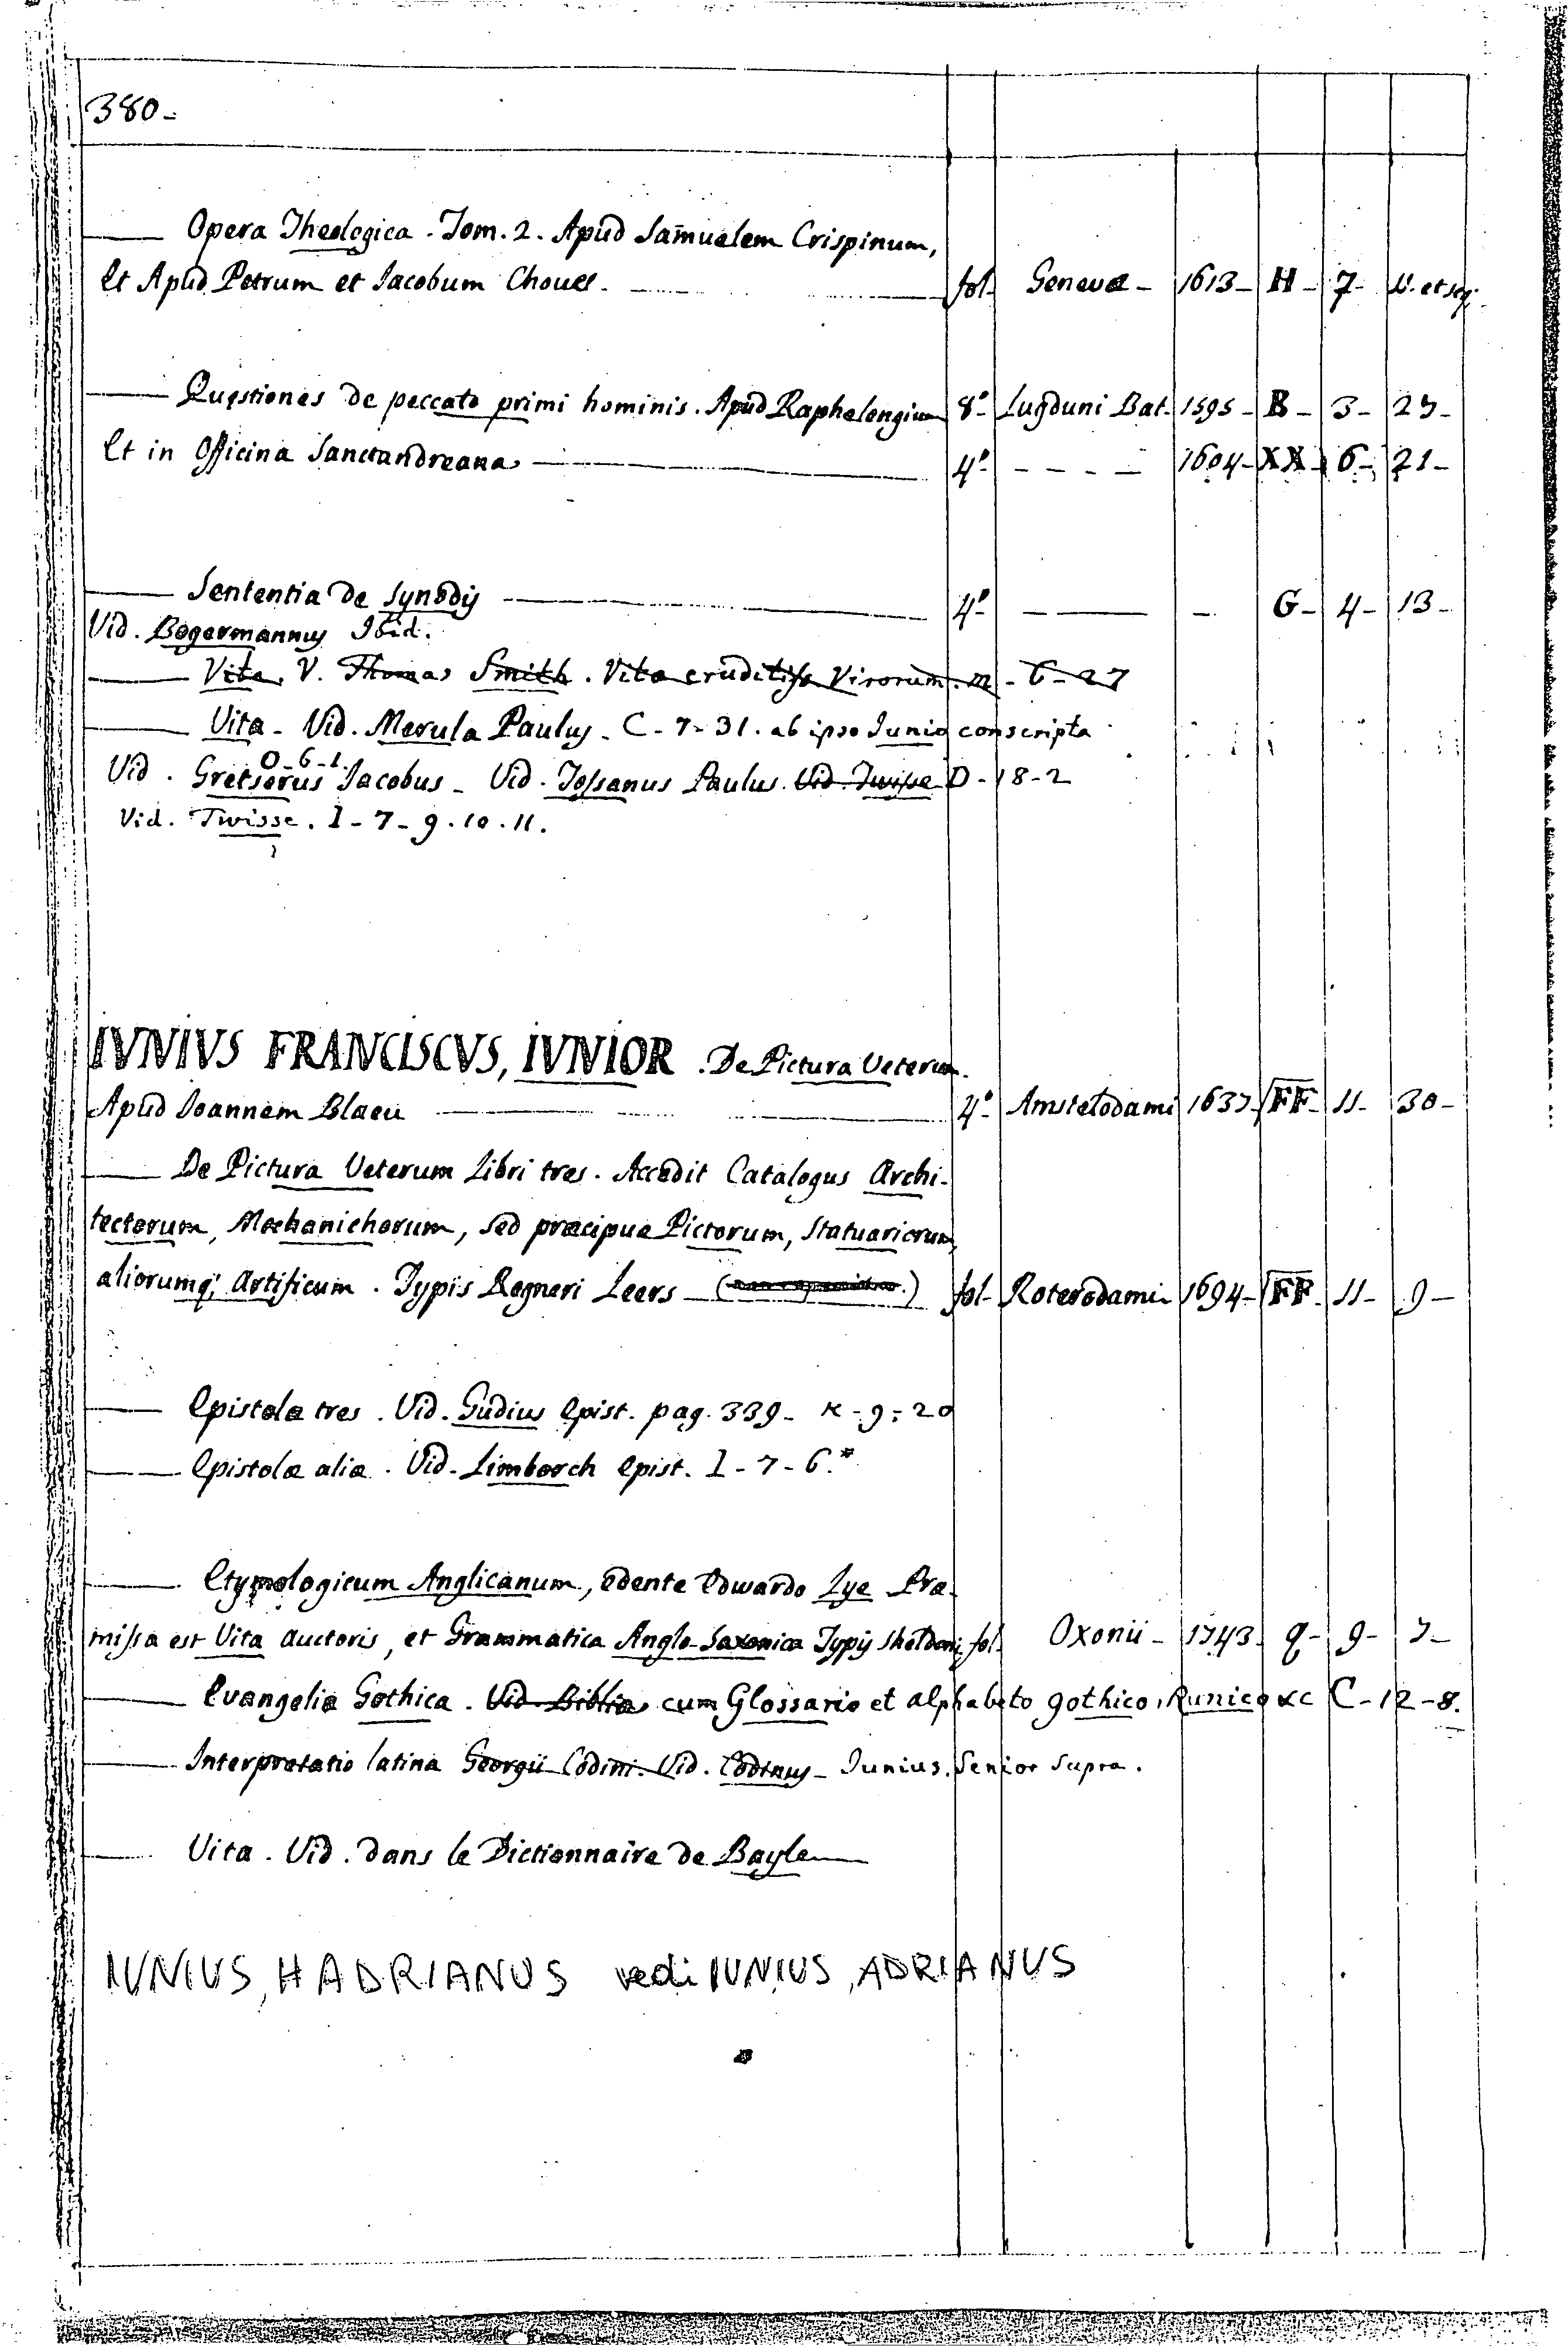 380-
—— Opera Theologica. Tom. 2. Apud Samuelem Crispinum,
Et Apud Petrum et Jacobum Chouet. —— fol. Genevæ - 1613- H- 7- et seq.
—— Quęstiones de peccato primi hominis. Apud Raphelengium 8º- Lugduni Bat. 1595- B- 3- 27-
Et in Officina Sanctandreana —— 4º- - - - — 1604- XX- 6- 21-
—— Sententia de Synodis —— 4º- —— — G- 4- 13-
Vid. Bogermannus Ibid.
—— Vita. V. Thomas Smith. Vita eruditiss. Virorum. m - 6 - 27
—— Vita - Vid. Merula Paulus - C - 7 - 31. ab ipso Junio conscripta
O-6-1.
Vid. Gretserus Jacobus - Vid. Tossanus Paulus. Vid. Twisse D - 18 - 2
Vid. Twisse. I - 7 - 9 . 10 . 11.
IVNIVS FRANCISCVS, IVNIOR. De Pictura Veterum.
Apud Joannem Blaeu —— 4º- Amstelodami 1637- FF- 11- 30-
—— De Pictura Veterum Libri tres. Accedit Catalogus Archi-
tectorum, Mechanichorum, sed præcipue Pictorum, Statuariorum,
aliorumq; Artificum. Typis Regneri Leers - ( ) fol- Roterodami- 1694- FF- 11- 9-
—— Epistolæ tres. Vid. Gudius Epist. pag. 339- K - 9 - 20
—— Epistolæ aliæ. Vid. Limborch Epist. I - 7 - 6.*
—— Etymologicum Anglicanum, edente Edwardo Lye Præ-
missa est Vita Auctoris, et Grammatica Anglo-Saxonica Typis Sheldon: fol. Oxonii- 1743- q- 9- 7-
—— Evangelia Gothica. Vid. Biblia cum Glossario et alphabeto gothico, Runico &c C - 12 - 8.
—— Interpretatio latina Georgii Codini. Vid. Codinus - Junius Senior supra.
—— Vita. Vid. dans le Dictionnaire de Bayle ——
IUNIUS, HADRIANUS vedi IUNIUS, ADRIANUS